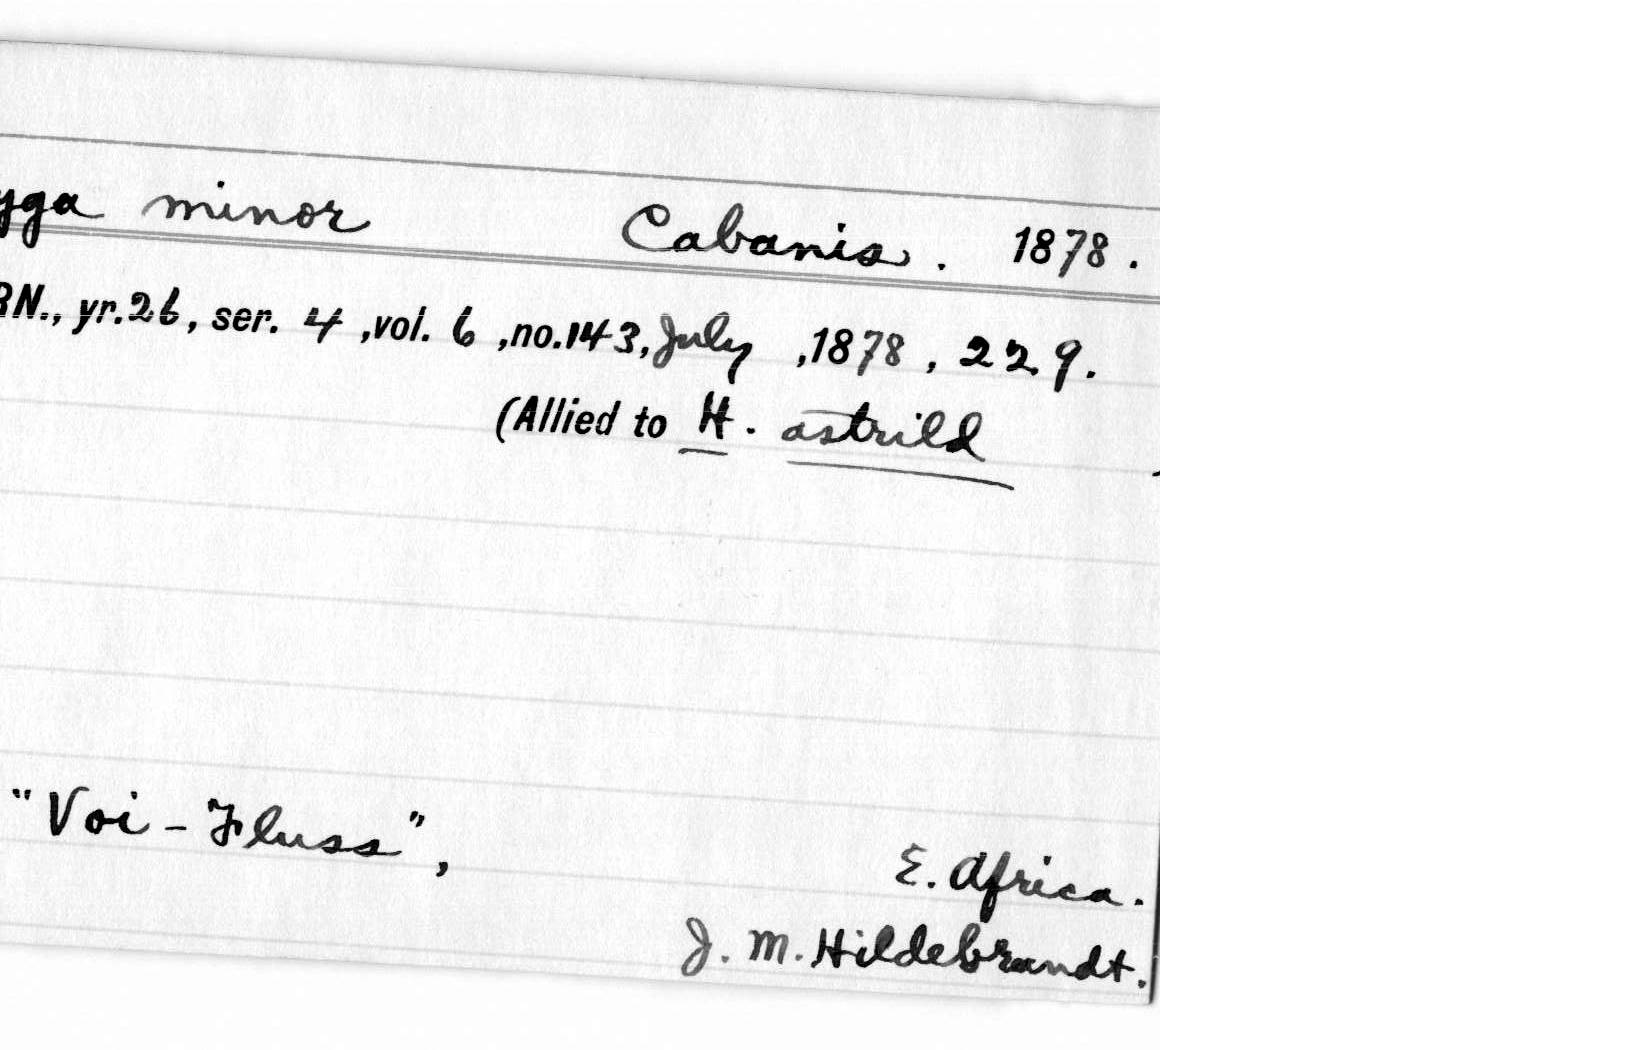 yga minor Cabanis. 1878.
RN., yr.26, ser. 4, vol. 6, no.143, July, 1878, 229.
(Allied to H. astrild
"Voi-Fluss",
E. Africa.
J. M. Hildebrandt.